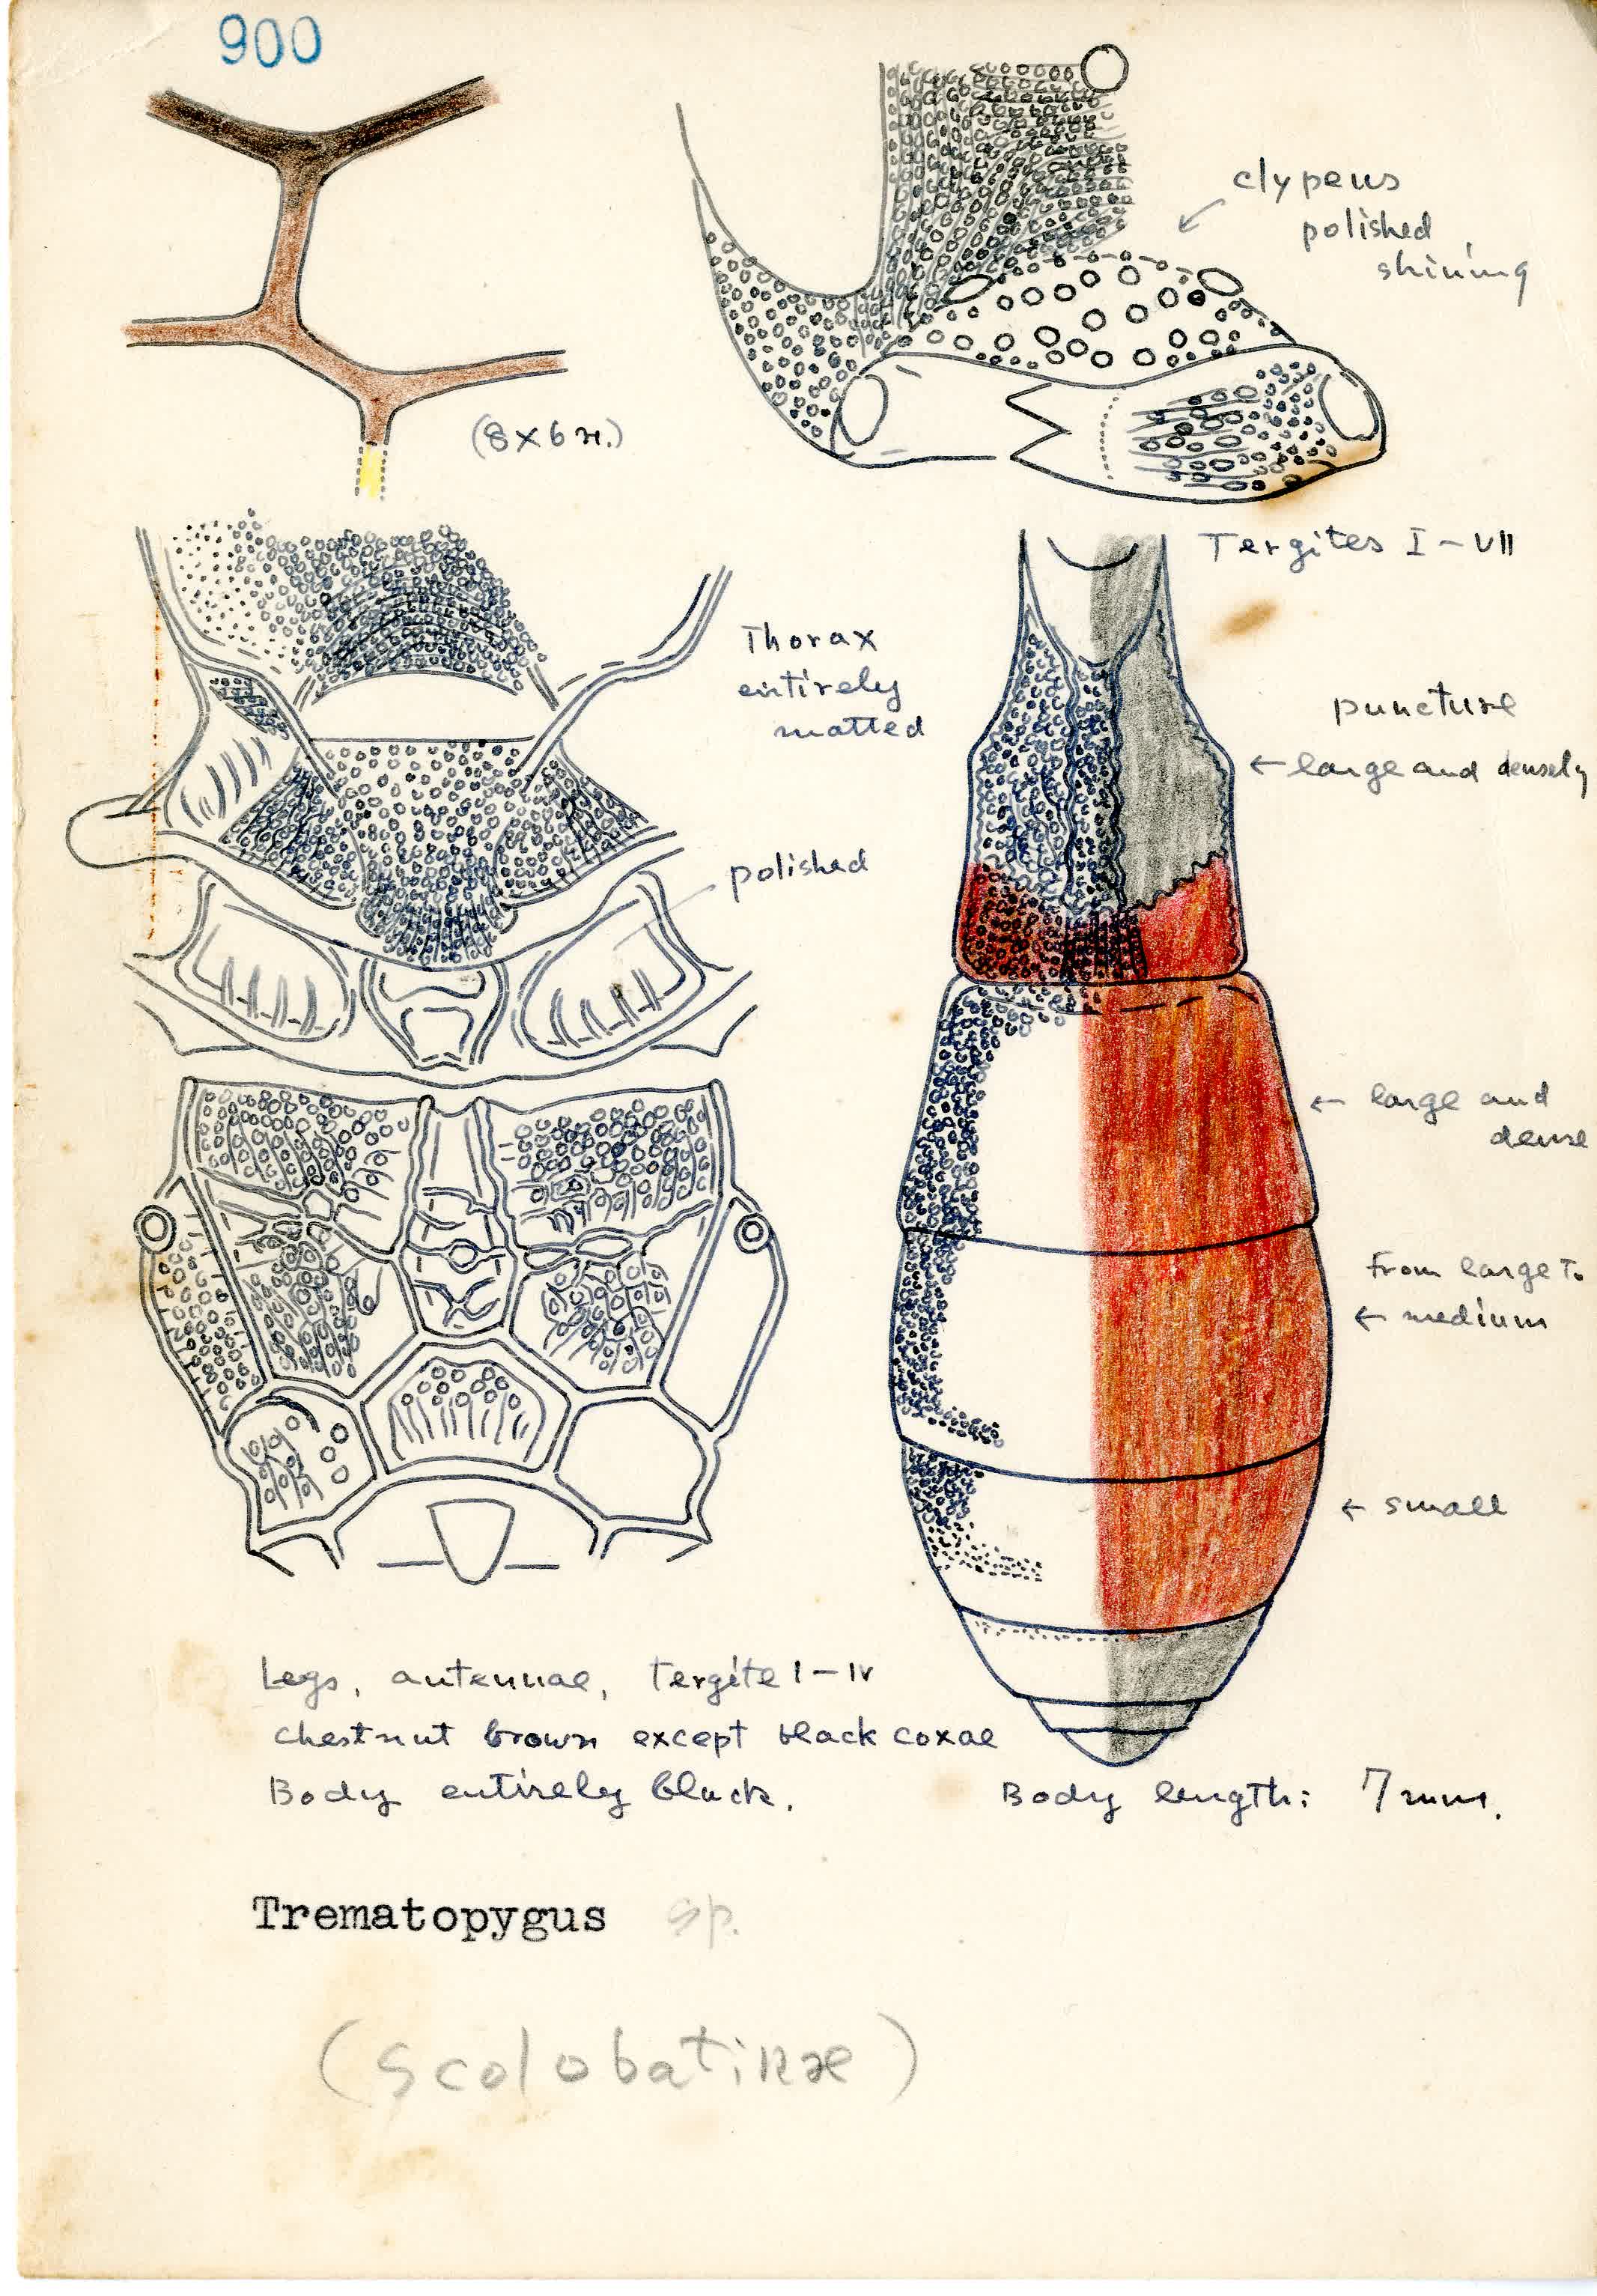 900
clypeus
polished
shining
(8×6 n.)
Tergites I-VII
Thorax
entirely
matted
puncture
←large and densely
polished
← large and
dense
From large to
← medium
← small
Legs, antennae, tergite I-IV
chestnut brown except black coxae
Body entirely black.
Body length: 7 mm.
Trematopygus sp.
(Scolobatinae)